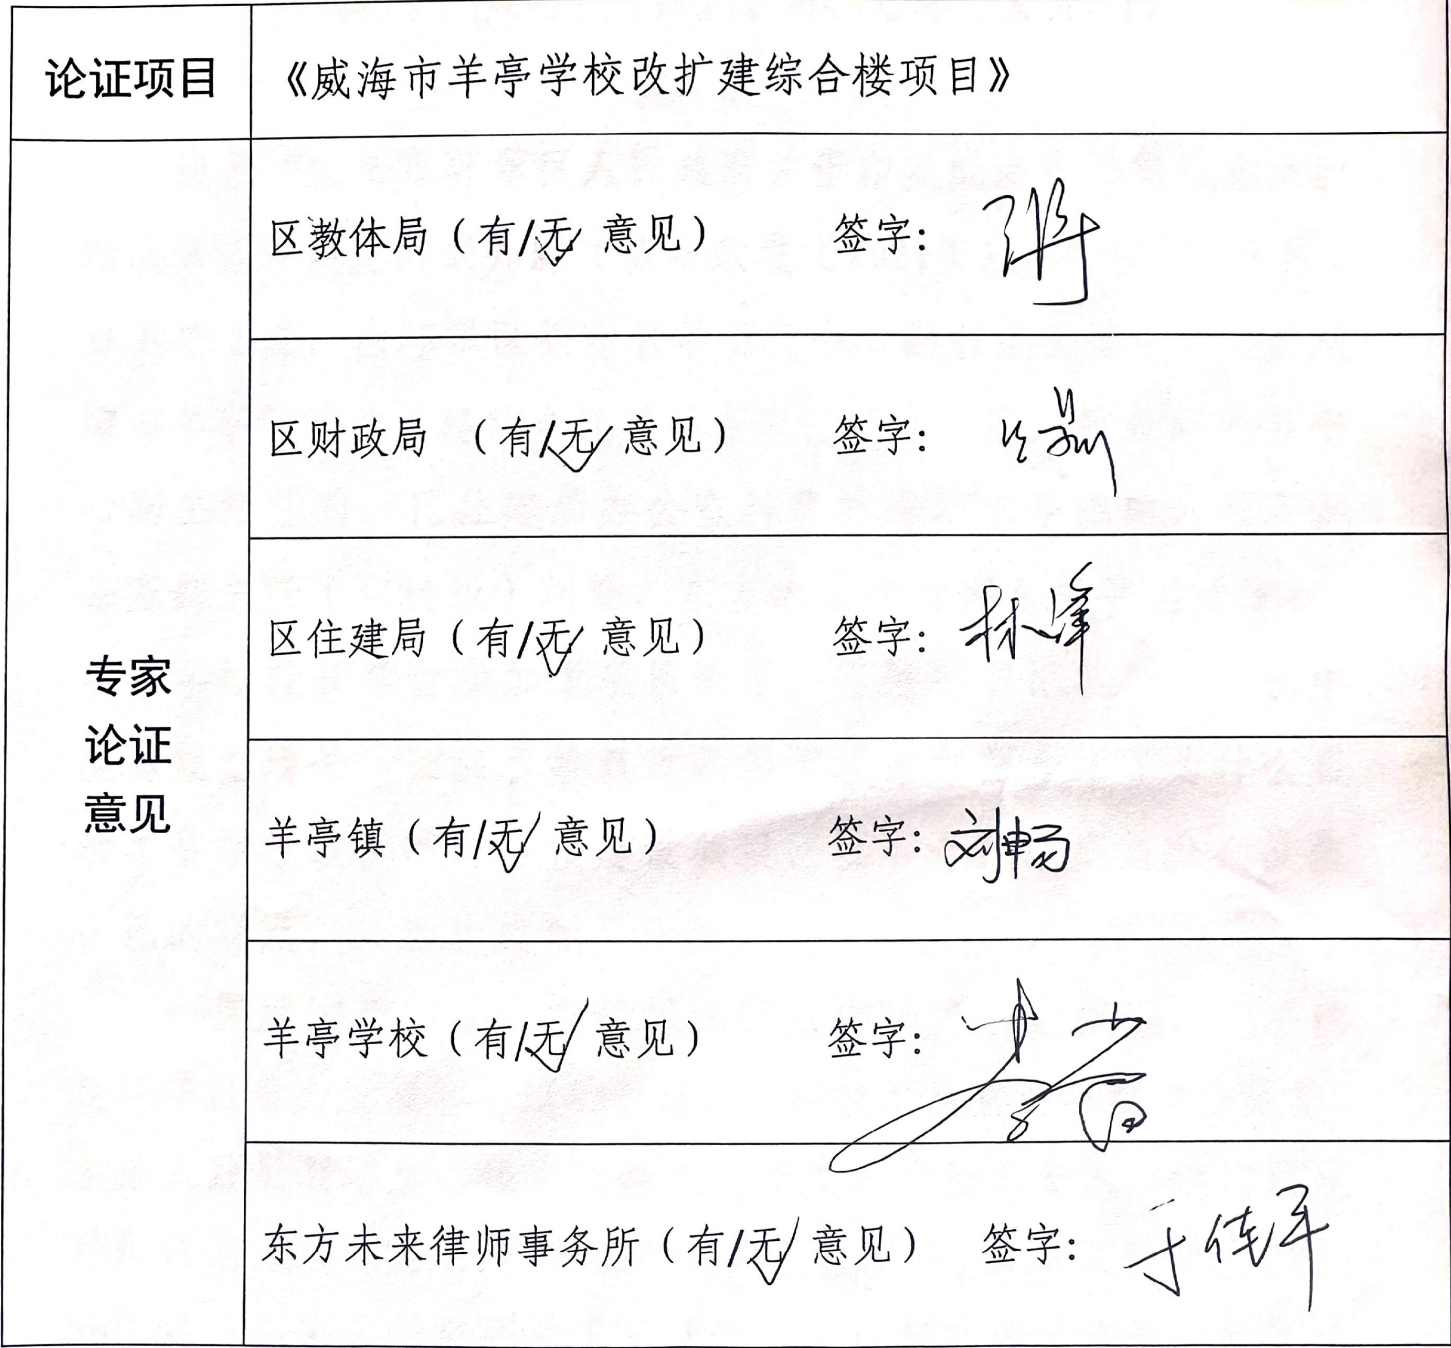 论证项目
《威海市羊亭学校改扩建综合楼项目》
专家
论证
意见
区教体局（有/无 意见） 签字：
区财政局 （有/无 意见） 签字：
区住建局（有/无 意见） 签字：林峰
羊亭镇（有/无 意见） 签字：刘畅
羊亭学校（有/无 意见） 签字：
东方未来律师事务所（有/无 意见） 签字：